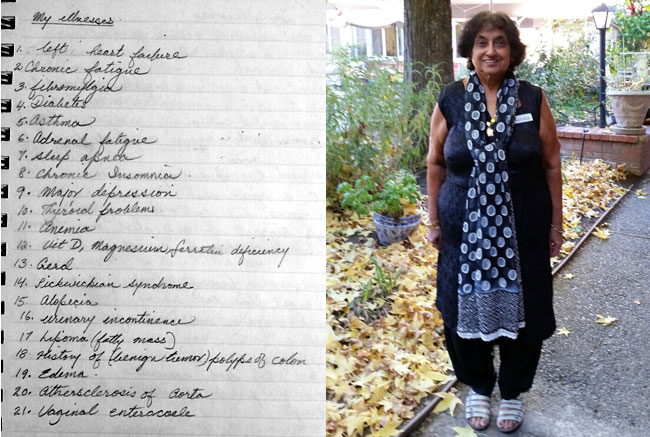 My illnesses
1. left heart failure
2 Chronic fatigue
3. fibromylgia
4. Diabetes
5. Asthma
6. Adrenal fatigue
7. sleep apnea
8. Chronic Insomnia
9. Major depression
10. Thyroid problems
11. Anemia
12. Vit D, Magnesium, ferretin deficiency
13. Gerd
14. Pickwickian syndrome
15. Alopecia
16. urinary incontinence
17. Lipoma (fatty mass)
18. History of (benign tumor) polyps of colon
19. Edema
20. Athersclerosis of Aorta
21. Vaginal enteracoele